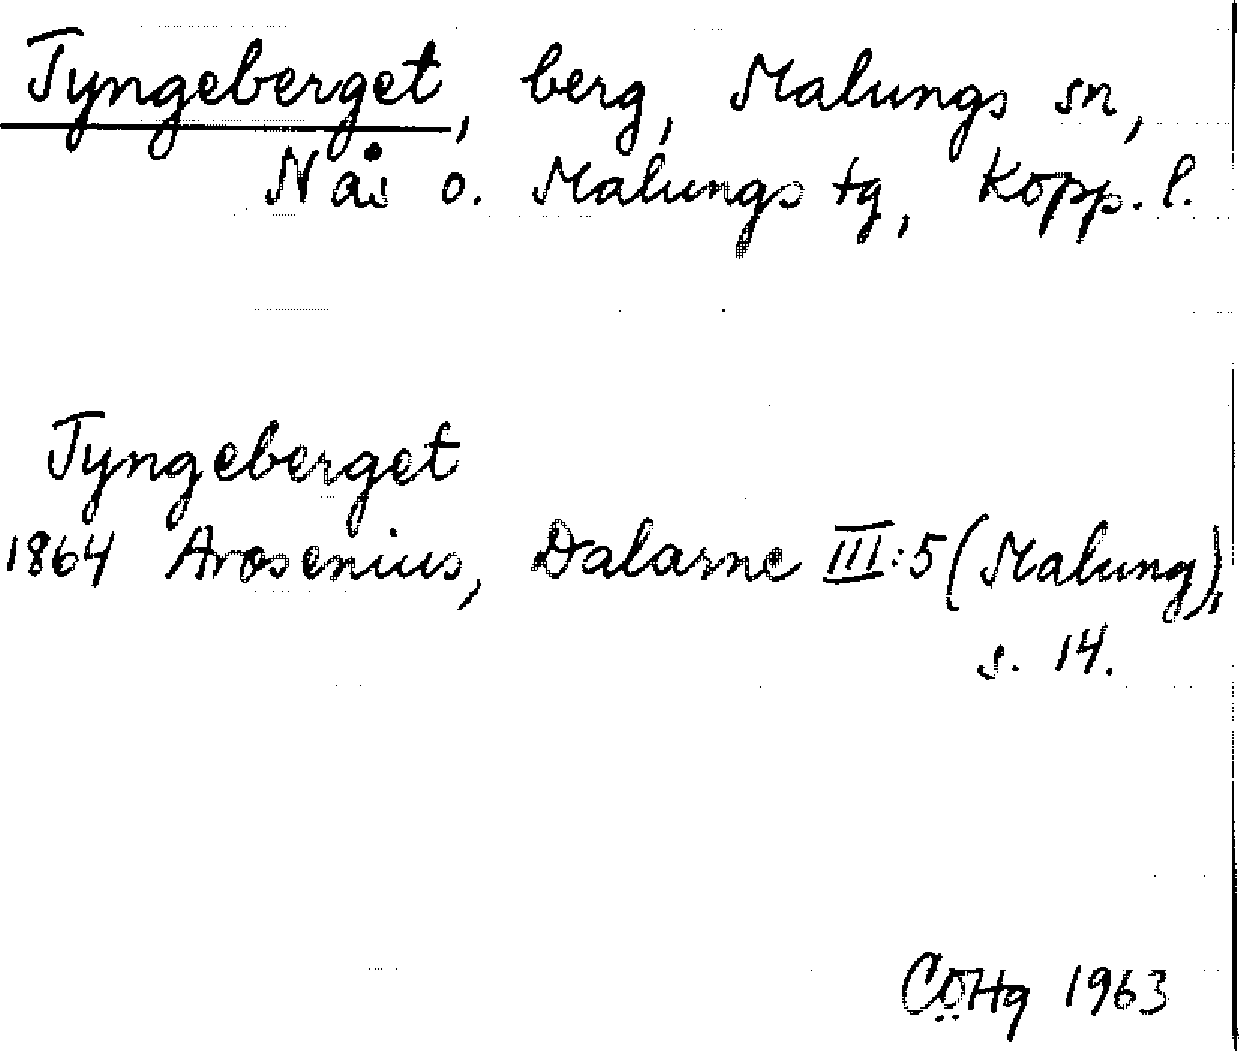 Tyngeberget, berg, Malungs sn,
Nås o. Malungs tg, Kopp. l.
Tyngeberget
1864 Arosenius, Dalarne III:5 (Malung),
s. 14.
CÖHg 1963